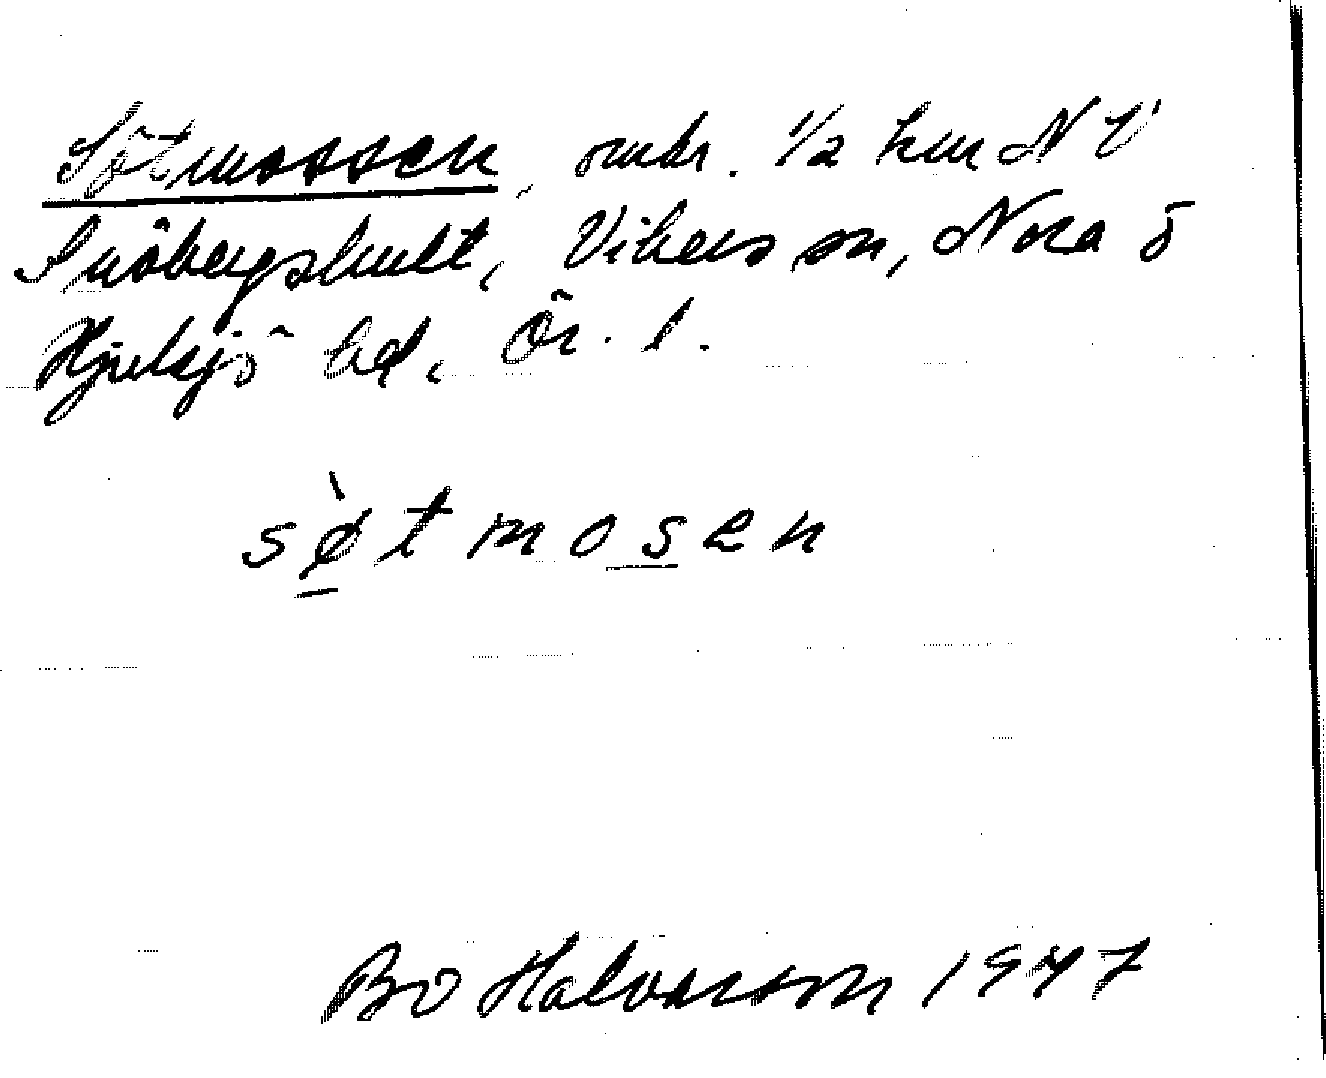 Sötmossen, smkr. 1/2 km NV
Snöbergshult, Vikers sn, Nora o
Hjulsjö bd, Ör. l.
sø̀tmosen
Bo Halvarsson 1947